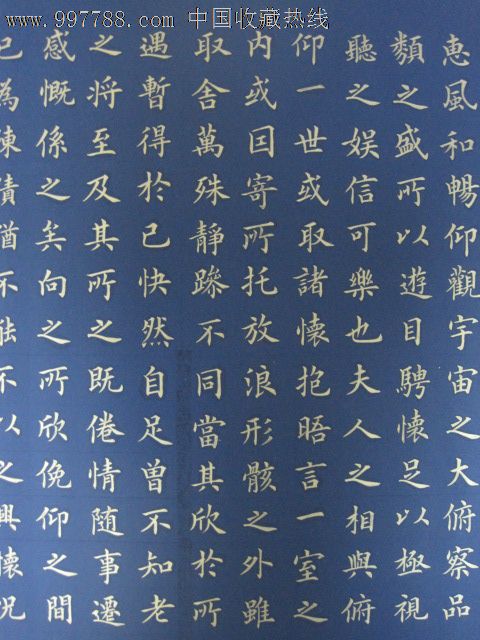 www.997788.com 中国收藏热线
恵風和暢仰觀宇宙之大俯察品
類之盛所以遊目騁懷足以極視
聽之娱信可樂也夫人之相與俯
仰一世或取諸懷抱晤言一室之
内或因寄所托放浪形骸之外雖
取舍萬殊靜躁不同當其欣於所
遇暫得於己快然自足曾不知老
之將至及其所之既倦情随事遷
感慨係之矣向之所欣俛仰之間
已為陳蹟猶不能不以之興懷況